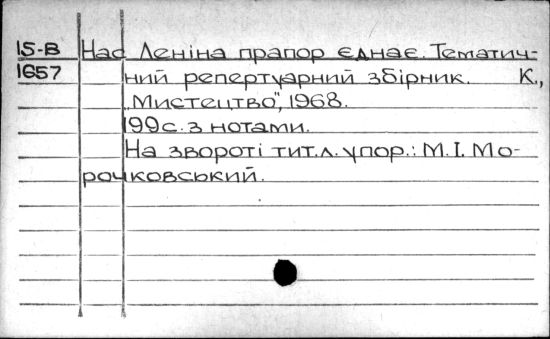 15-В Нас Леніна прапор єднає. Тематич-
1657 ний репертуарний збірник. К.,
„Мистецтво", 1968.
199с. з нотами.
На звороті тит.л. упор.: М.І. Мо-
рочковський.